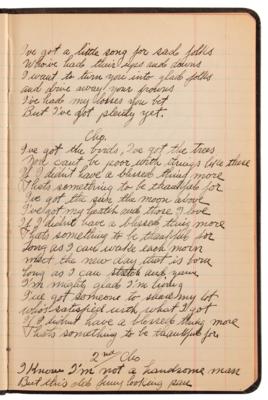 I've got a little song for sad folks
Who've had their ups and downs
I want to turn you into glad folks
and drive away your frowns
I've had my losses you bet
But I've got plenty yet.
Cho.
I've got the birds, I've got the trees
You can't be poor with things like these
If I didn't have a blessed thing more
Thats something to be thankful for
I've got the sun the moon above
I've got my health and those I love
If I didn't have a blessed thing more
Thats something to be thankful for
Long as I can wake each morn
meet the new day that is born
Long as I can stretch and yawn
I'm mighty glad I'm living
I've got someone to share my lot
who's satisfied with what I got
If I didn't have a blessed thing more
Thats something to be thankful for
2nd Cho
I know I'm not a handsome man
But this old